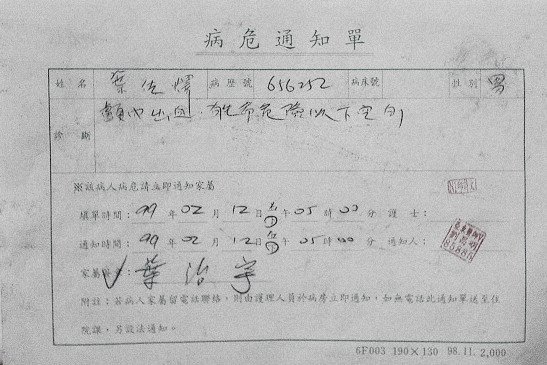 病危通知單
姓名 葉佐 病歷號 656252 病床號 性別 男
診斷 顱內出血
※該病人病危請立即通知家屬
填單時間：99年02月12日 午05時00分 護士：
通知時間：99年02月12日 午05時00分 通知人：
家屬 葉治宇
附註：若病人家屬留電話聯絡，則由護理人員於病房立即通知，如無電話此通知單送至住
院課，另設法通知。
6F003 190×130 98.11. 2,000